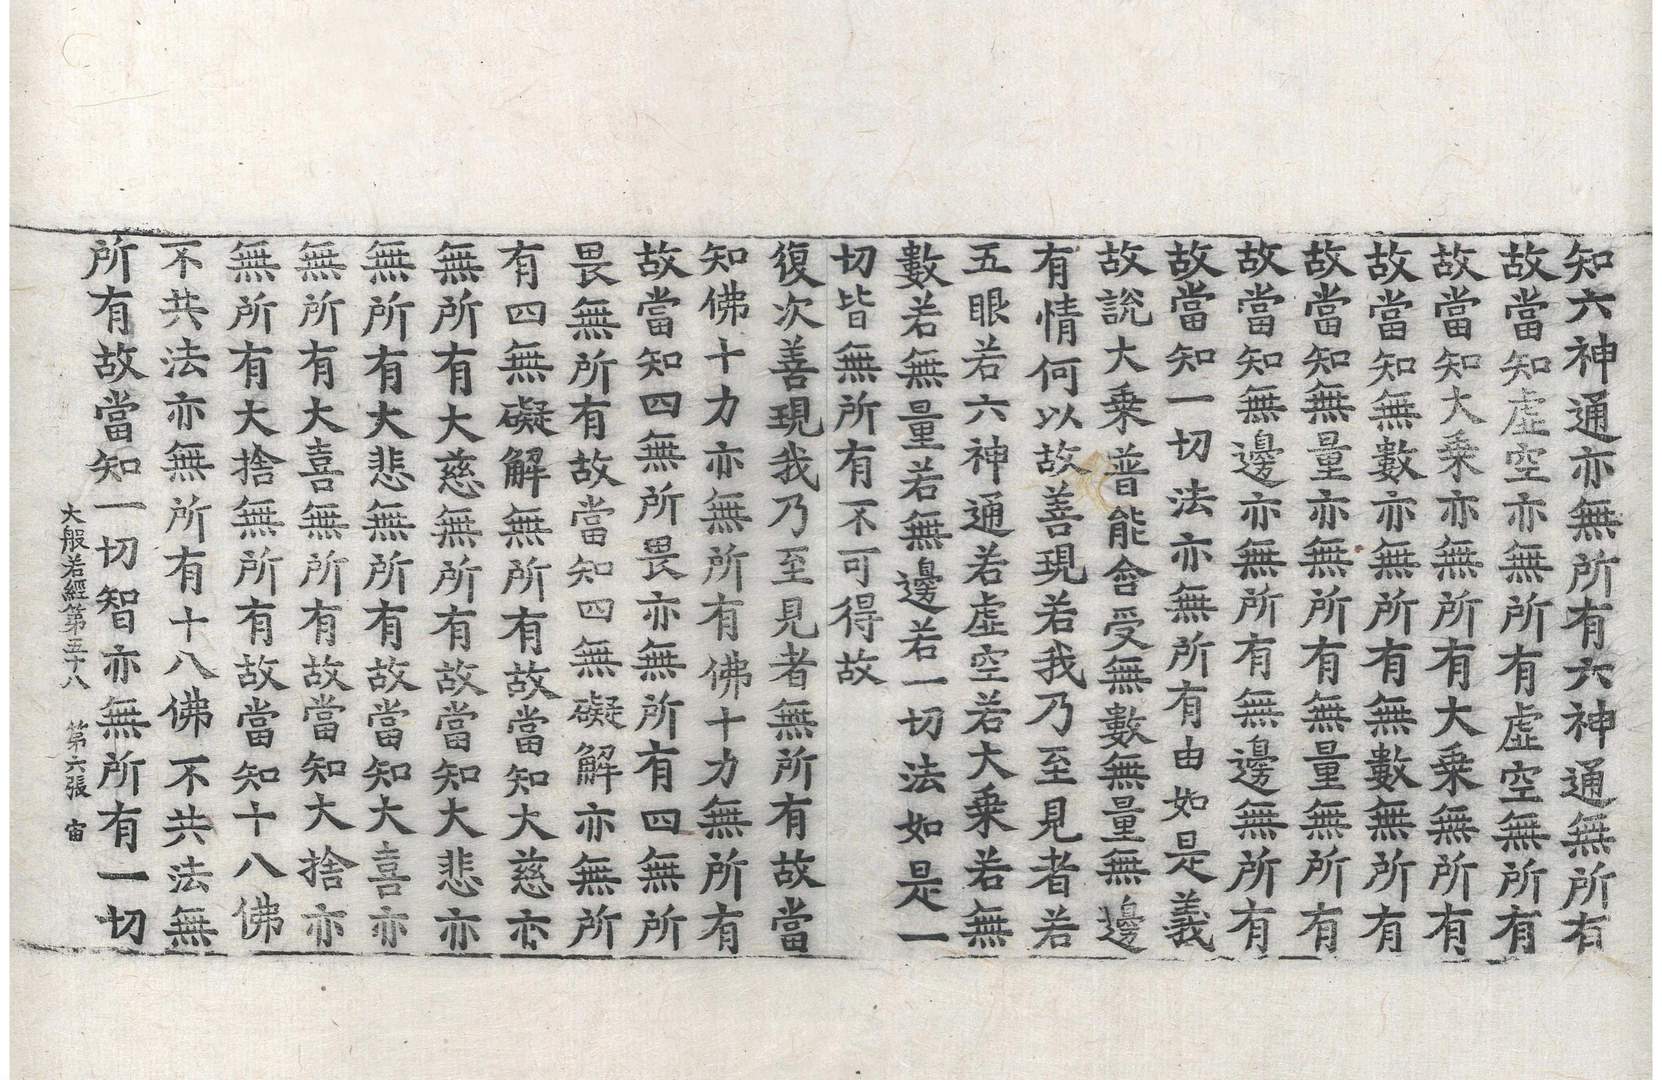 知六神通亦無所有六神通無所有
故當知虛空亦無所有虛空無所有
故當知大乘亦無所有大乘無所有
故當知無數亦無所有無數無所有
故當知無量亦無所有無量無所有
故當知無邊亦無所有無邊無所有
故當知一切法亦無所有由如是義
故說大乘普能含受無數無量無邊
有情何以故善現若我乃至見者若
五眼若六神通若虛空若大乘若無
數若無量若無邊若一切法如是一
切皆無所有不可得故
復次善現我乃至見者無所有故當
知佛十力亦無所有佛十力無所有
故當知四無所畏亦無所有四無所
畏無所有故當知四無礙解亦無所
有四無礙解無所有故當知大慈亦
無所有大慈無所有故當知大悲亦
無所有大悲無所有故當知大喜亦
無所有大喜無所有故當知大捨亦
無所有大捨無所有故當知十八佛
不共法亦無所有十八佛不共法無
所有故當知一切智亦無所有一切
大般若經第五十八 第六張 宙